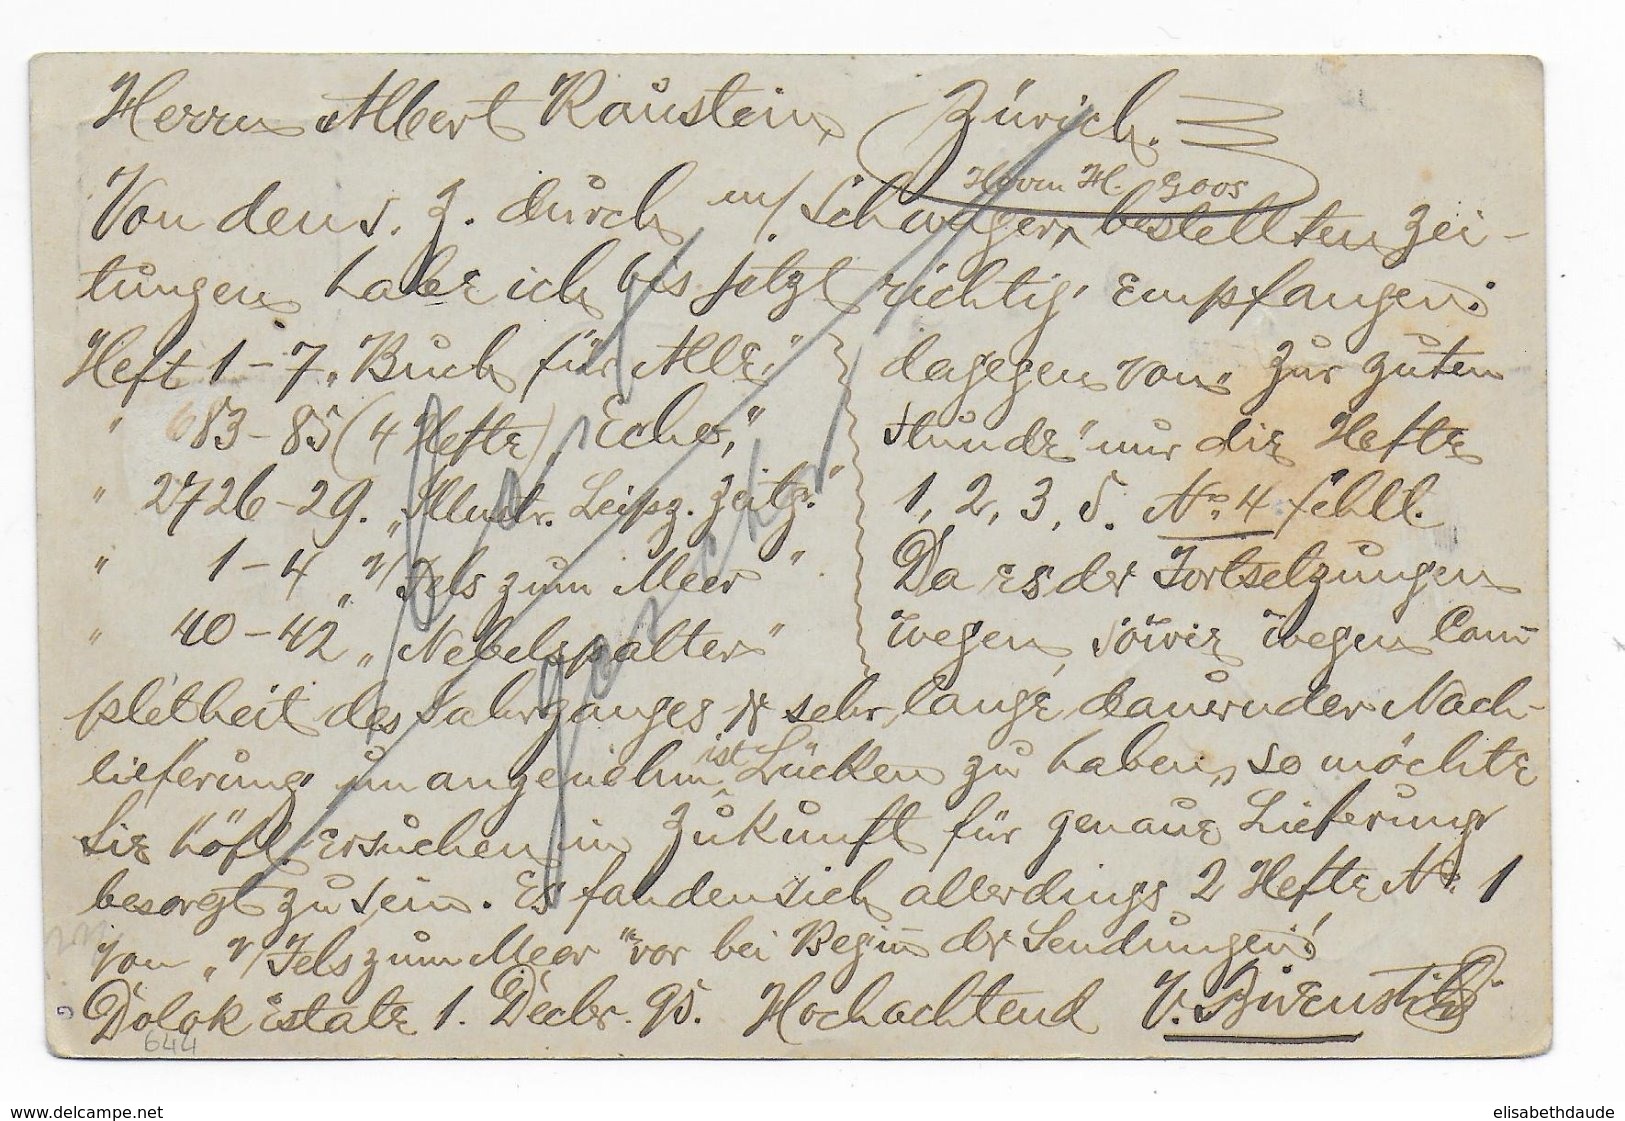 Herrn Albert Raustein, Zürich.
Herrn H. Goos
Von den s. Z. durch m/ Schwager, bestellten Zei-
tungen habe ich bis jetzt richtig empfangen:
Heft 1-7 „Buch für Alle."
" 683-85 (4 Hefte) „Echo,"
" 2726-29. „Illustr. Leipz. Zeitg."
" 1-4 „v/ Fels zum Meer".
" 40-42 „Nebelspalter"
dagegen von „Zur guten
Stunde" nur die Hefte
1, 2, 3, 5. No. 4 fehlt.
Da es der Fortsetzungen
wegen, sowie wegen Com-
pletheit des Jahrganges & sehr lange dauernder Nach-
lieferung unangenehm ist Lücken zu haben, so möchte
Sie höfl. ersuchen in Zukunft für genaue Lieferung
besorgt zu sein. Es fanden sich allerdings 2 Hefte No. 1
von „v/ Fels zum Meer" vor bei Beginn der Sendungen!
Dolok Estate 1. Decbr. 95. Hochachtend V.
644
www.delcampe.net
elisabethdaude